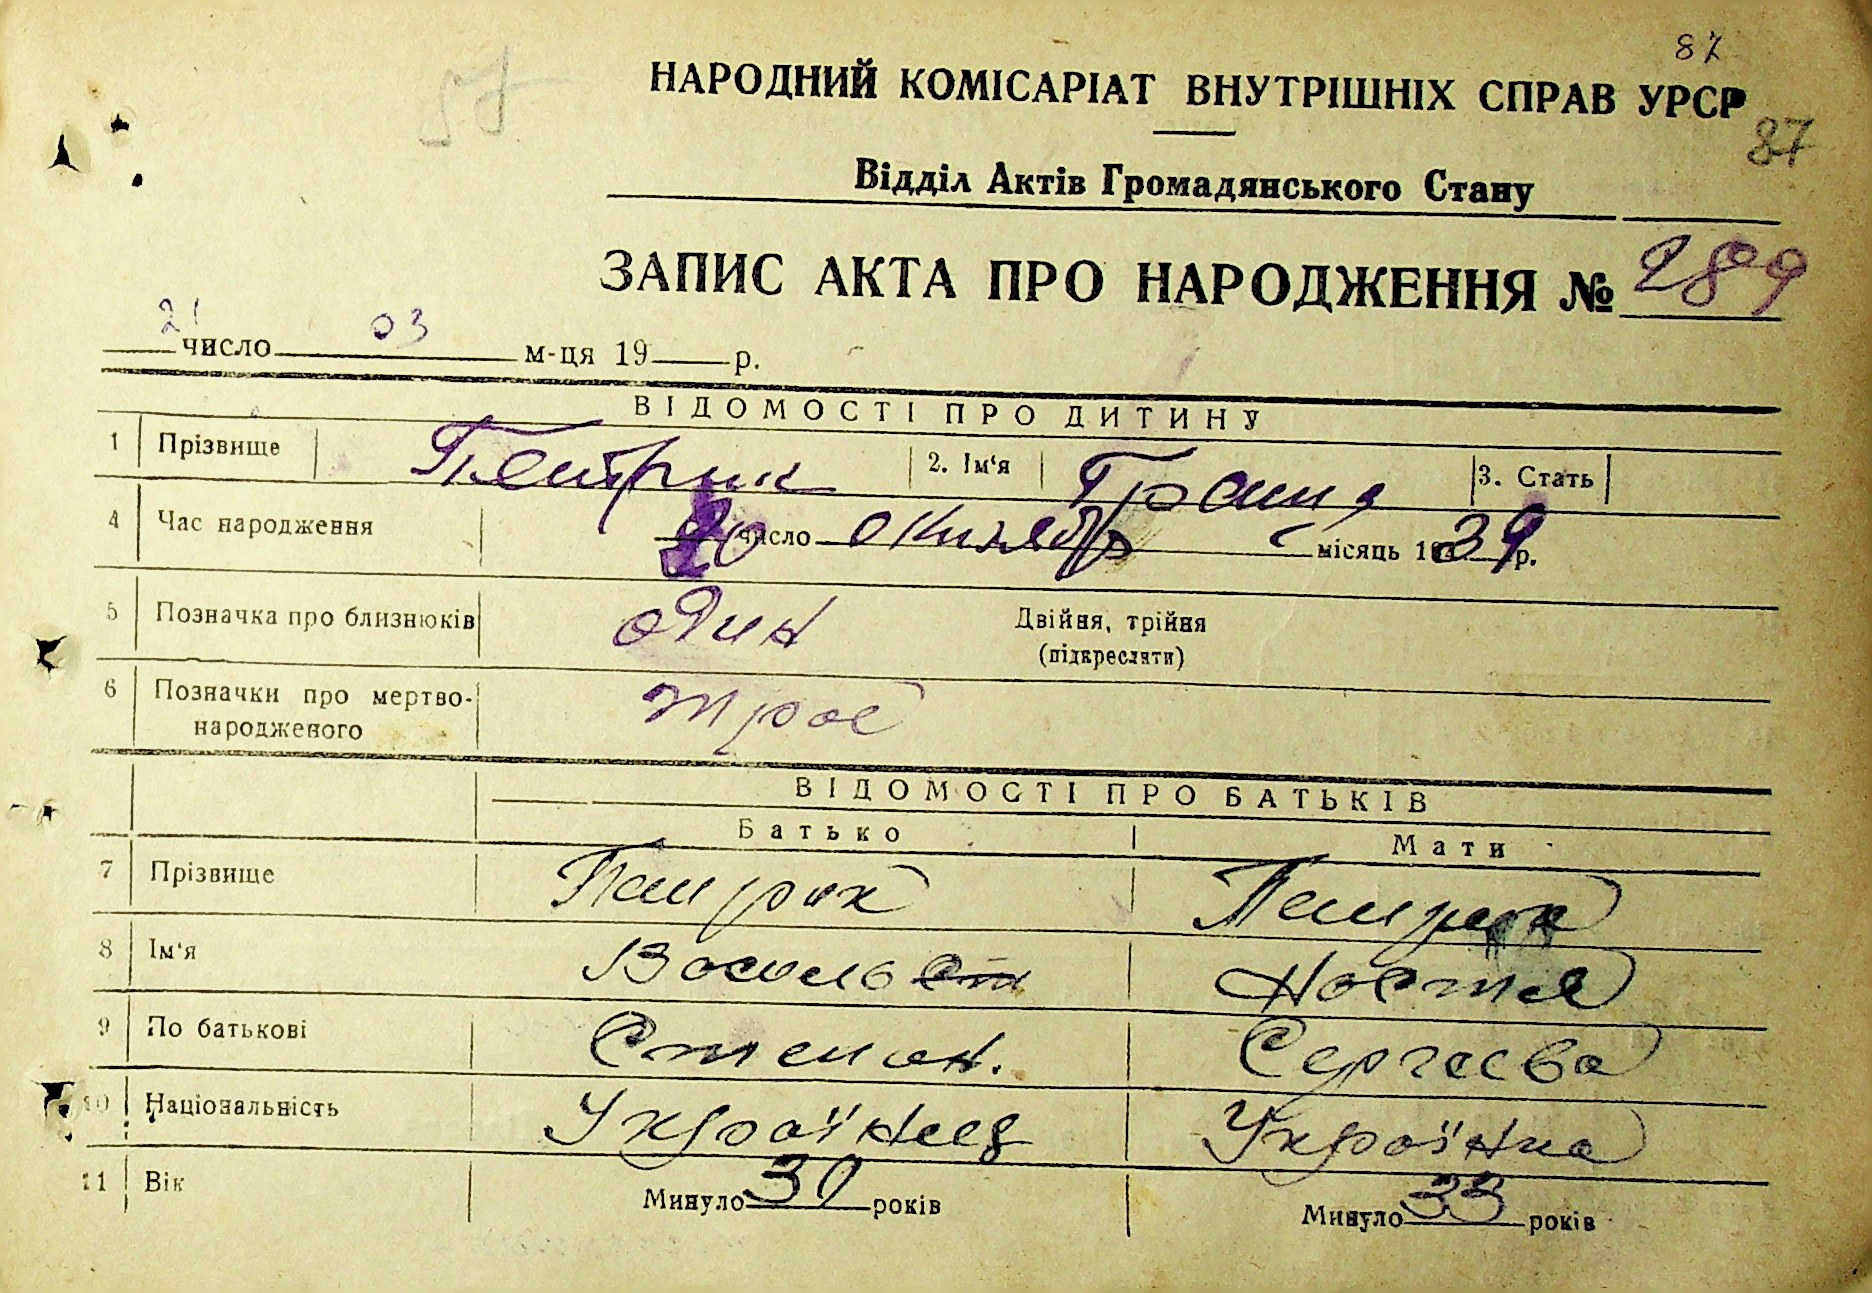 87
57
НАРОДНИЙ КОМІСАРІАТ ВНУТРІШНІХ СПРАВ УРСР
87
Відділ Актів Громадянського Стану
ЗАПИС АКТА ПРО НАРОДЖЕННЯ № 289
21 число 03 м-ця 19 р.
ВІДОМОСТІ ПРО ДИТИНУ
1 Прізвище Петрик 2. Ім'я 3. Стать
4 Час народження 20 число октября місяць 1939 р.
5 Позначка про близнюків один Двійня, трійня
(підкреслити)
6 Позначки про мертво-
народженого троє
ВІДОМОСТІ ПРО БАТЬКІВ
Батько Мати
7 Прізвище Петрик Петрик
8 Ім'я Василь Ст Настя
9 По батькові Степан. Сергеева
10 Національність Українец Українка
11 Вік Минуло 30 років Минуло 33 років